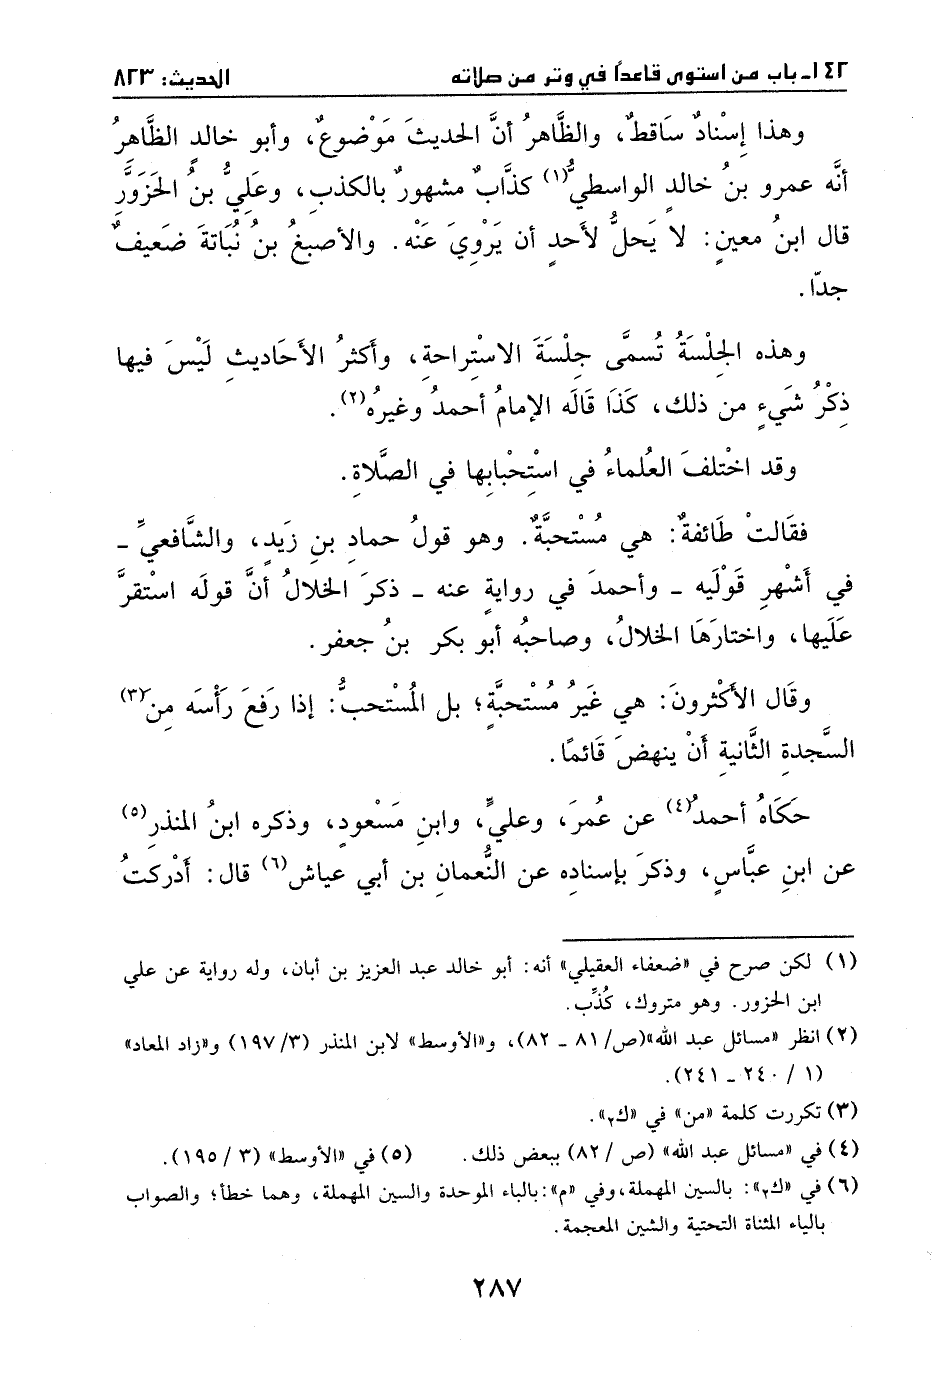 ١٤٢ـ باب من استوى قاعدًا في وتر من صلاته الحديث: ٨٢٣
وهذا إسْنادٌ سَاقطٌ، والظَّاهرُ أنَّ الحديثَ مَوْضوعٌ، وأبو خالدٍ الظَّاهرُ
أنَّه عمرو بنُ خالدٍ الواسطيُّ(١) كذَّابٌ مشهورٌ بالكذبِ، وعَلِيُّ بنُ الحَزَوَّرِ
قال ابنُ معينٍ: لا يَحلُّ لأحدٍ أن يَرْوِيَ عَنْه. والأصبغُ بنُ نُبَاتةَ ضَعيفٌ
جدّا.
وهذه الجِلْسَةُ تُسمَّى جِلْسَةَ الاسْتِراحةِ، وأكثرُ الأحَاديثِ لَيْسَ فيها
ذِكْرُ شَيءٍ من ذلك، كَذَا قالَه الإمامُ أحمدُ وغيرُه(٢).
وقد اخْتلفَ العُلماءُ في اسْتِحْبابِها في الصَّلاةِ.
فقَالتْ طَائفةٌ: هي مُسْتحبَّةٌ. وهو قولُ حمادِ بنِ زَيدٍ، والشَّافعيِّ ـ
في أشْهرِ قَوْليه ـ وأحمدَ في روايةٍ عنه ـ ذكرَ الخلالُ أنَّ قولَه استْقرَّ
عَلَيها، واختارَهَا الخلالُ، وصاحبُه أبو بكر بنُ جعفر.
وقَال الأكْثرونَ: هي غَيرُ مُسْتحبَّةٍ؛ بل المُسْتحبُّ: إذا رَفعَ رَأْسَه مِن(٣)
السَّجدةِ الثَّانيةِ أنْ ينهضَ قَائمًا.
حَكَاهُ أحمدُ(٤) عن عُمرَ، وعليٍّ، وابنِ مَسْعودٍ، وذكره ابنُ المنذرِ(٥)
عن ابنِ عبَّاسٍ، وذكرَ بإسنادِه عن النُّعمانِ بن أبي عياش(٦) قال: أدْركتُ
(١) لكن صرح في «ضعفاء العقيلي» أنه: أبو خالد عبد العزيز بن أبان، وله رواية عن علي
ابن الحزور. وهو متروك، كُذِّب.
(٢) انظر «مسائل عبد الله»(ص/ ٨١ ـ ٨٢)، و«الأوسط» لابن المنذر (٣/ ١٩٧) و«زاد المعاد»
(١ / ٢٤٠ ـ ٢٤١).
(٣) تكررت كلمة «من» في «ك٢».
(٤) في «مسائل عبد الله» (ص / ٨٢) ببعض ذلك. (٥) في «الأوسط» (٣ / ١٩٥).
(٦) في «ك٢»: بالسين المهملة، وفي «م»: بالباء الموحدة والسين المهملة، وهما خطأ؛ والصواب
بالياء المثناة التحتية والشين المعجمة.
٢٨٧